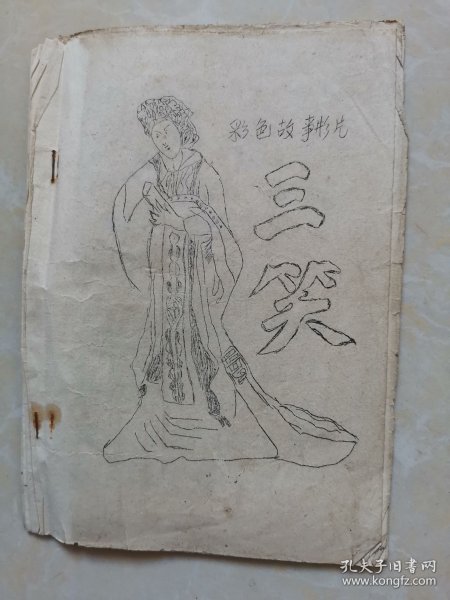 彩色故事影片
三
笑
孔夫子旧书网
www.kongfz.com